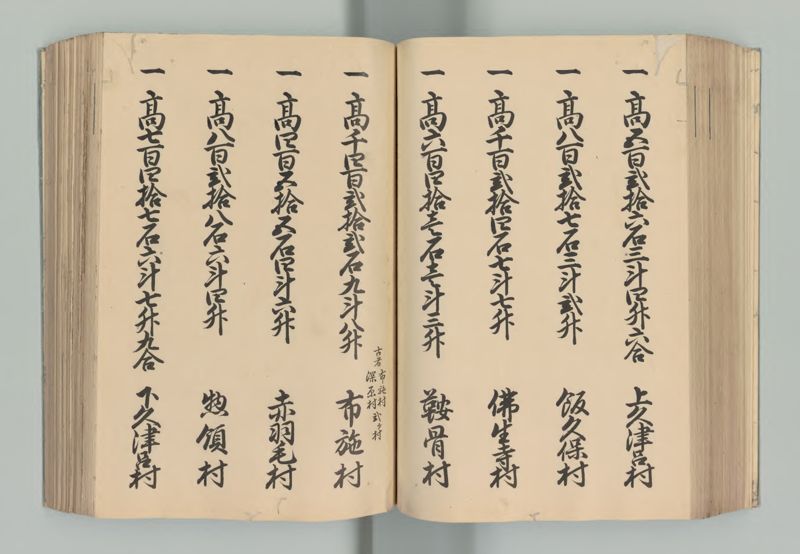 一 高五百弐拾六石三斗四升六合 上久津呂村
一 高八百弐拾七石三斗弐升 飯久保村
一 高千百弐拾四石七斗七升 佛生寺村
一 高六百四拾壱石壱斗三升 鞍骨村
古者 布施村
深原村 弐ケ村
一 高千四百弐拾弐石九斗八升 布施村
一 高四百五拾五石四斗六升 赤羽毛村
一 高八百弐拾八石六斗四升 惣領村
一 高七百四拾七石六斗七升九合 下久津呂村